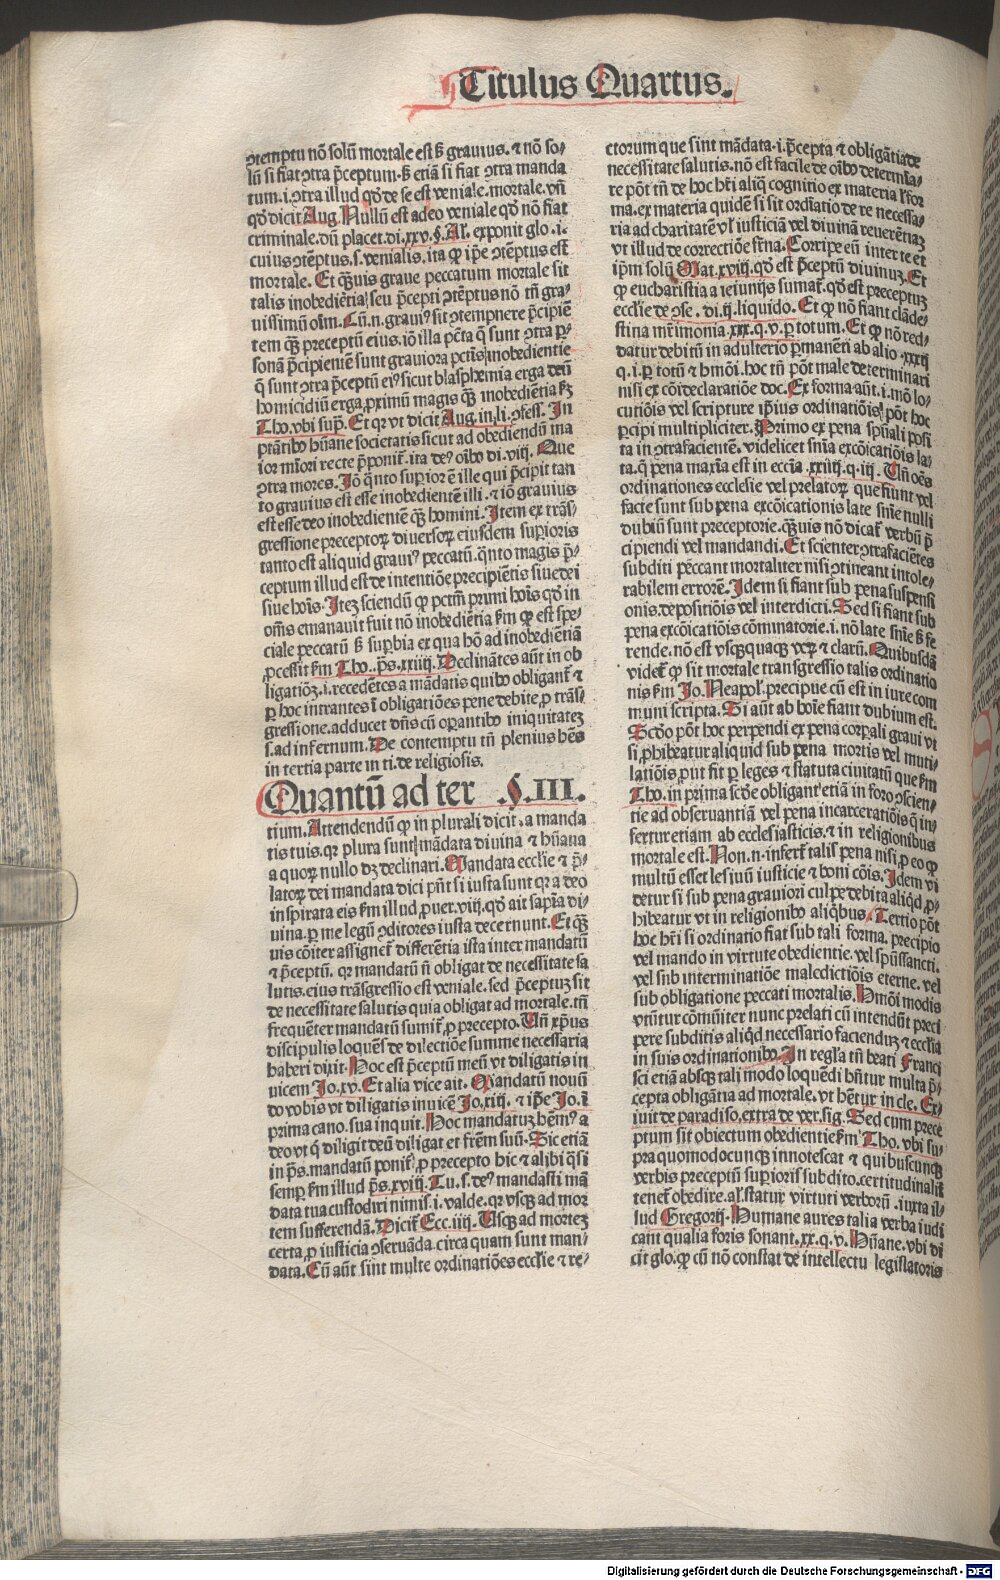 Titulus Quartus.
ꝯtemptu nō solū mortale est sꝫ grauius. ⁊ nō so⸗
lū si fiat ꝯtra p̄ceptum. sꝫ etiā si fiat ꝯtra manda
tum. i. ꝯtra illud qđ de se est veniale. mortale. vn̄
qđ dicit Aug. Nullū est adeo veniale qđ nō fiat
criminale. dū placet. di. xxv. §. Al'. exponit glo. i.
cuius ꝯtēptus. s. venialis. ita ꝙ ip̄e ꝯtēptus est
mortale. Et qꝫuis graue peccatum mortale sit
talis inobediētia seu p̄cepti ꝯtēptus nō tn̄ gra⸗
uissimū oīm. Cū. n. grauiꝰ sit ꝯtempnere p̄cipiē
tem qꝫ preceptū eius. iō illa pctā q̄ sunt ꝯtra ꝑ⸗
sonā p̄cipientē sunt grauiora pctīs inobedientie
q̄ sunt ꝯtra p̄ceptū eiꝰ sicut blasphemia erga deū
homicidiū erga ꝓximū magis qꝫ inobediētia ẜm
Tho. vbi supͣ. Et qꝛ vt dicit Aug. in. li. ꝯfess. In
ptātibꝰ hūane societatis sicut ad obediendū ma
ior miōri recte p̄ponit᷑. ita deꝰ oībꝰ di. viij. Que
ꝯtra mores. Iō q̄nto superior ē ille qui p̄cipit tan
to grauius est esse inobedientē illi. ⁊ iō grauius
est esse deo inobedientē qꝫ homini. Item ex trāſ⸗
gressione preceptoꝝ diuersoꝝ eiusdem superioris
tanto est aliquid grauiꝰ peccatū. q̄nto magis p̄⸗
ceptum illud est de intentiōe precipiētis siue dei
siue hoīs. Itez sciendū ꝙ pctm̄ primi hoīs qđ in
om̄s emanauit fuit nō inobediētia ẜm ꝙ est spe⸗
ciale peccatū sꝫ suꝑbia ex qua hō ad inobediētiā
ꝓcessit ẜm Tho. p̄s. xxiiij. Declinātes aūt in ob
ligatiōꝫ. i. recedētes a mādatis quibꝰ obligant᷑ ⁊
ꝑ hoc intrantes ī obligatiōes pene debite ꝓ trāſ⸗
gressione. adducet dn̄s cū oꝑantibꝰ iniquitatez
s. ad infernum. De contemptu tn̄ plenius hēs
in tertia parte in ti. de religiosis.
Quantū ad ter .§. III.
tium. Attendendū ꝙ in plurali dicit. a manda
tis tuis. qꝛ plura sunt mādata diuina ⁊ hūana
a quoꝝ nullo dꝫ declinari. Mandata ecclīe ⁊ p̄⸗
latoꝝ dei mandata dici pn̄t si iusta sunt qꝛ a deo
inspirata eis ẜm illud ꝓuer. viij. qđ ait sapīa di⸗
uina. ꝑ me legū ꝯditores iusta decernunt. Et qꝫ
uis cōiter assignet᷑ differētia ista inter mandatū
⁊ p̄ceptū. qꝛ mandatū n̄ obligat de necessitate sa
lutis. eius trāsgressio est veniale. sed p̄ceptuz sit
de necessitate salutis quia obligat ad mortale. tn̄
frequēter mandatū sumit᷑ ꝓ precepto. Vn̄ xp̄us
discipulis loquēs de dilectiōe summe necessaria
haberi dixit. Hoc est p̄ceptū meū vt diligatis in
uicem Io. xv. Et alia vice ait. Mandatū nouū
do vobis vt diligatis inuicē Io. xiij. ⁊ ip̄e Io. ī
prima cano. sua inquit. Hoc mandatuz hēmꝰ a
deo vt q̄ diligit deū diligat et fr̄em suū. Sic etiā
in p̄s. mandatū ponit᷑ ꝓ precepto hic ⁊ alibi q̄si
semꝑ ẜm illud p̄s. xviij. Tu. s. deꝰ mandasti mā
data tua custodiri nimis. i. valde. qꝛ vsqꝫ ad mor
tem sufferendā. Dicit᷑ Ecc. iiij. Usqꝫ ad mortez
certa ꝓ iusticia ꝯseruāda. circa quam sunt man⸗
data. Cū aūt sint multe ordinatiōes ecclīe ⁊ re⸗
ctorum que sint mādata. i. p̄cepta ⁊ obligātia de
necessitate salutis. nō est facile de oībꝰ determīa⸗
re pōt tn̄ de hoc hr̄i aliq̄ cognitio ex materia ł for
ma. ex materia quidē si sit ordīatio de re necessa⸗
ria ad charitatē vł iusticiā vel diuinā reuerētiaꝫ
vt illud de correctiōe fr̄na. Corripe eū inter te et
ip̄m solū Mat. xviij. qđ est p̄ceptū diuinuz. Et
ꝙ eucharistia a ieiunijs sumat᷑. qđ est preceptuꝫ
ecclīe de ꝯse. di. ij. liquido. Et ꝙ nō fiant clāde⸗
stina mr̄imonia. xxx. q. v. ꝑ totum. Et ꝙ nō red⸗
datur debitū in adulterio ꝑmanēti ab alio. xxxij
q. i. ꝑ totū ⁊ hmōi. hoc tn̄ pōt male determinari
nisi ex cōi declaratiōe doc. Ex forma aūt. i. mō lo⸗
cutiōis vel scripture ip̄ius ordinatiōis pōt hoc
ꝑcipi multipliciter. Primo ex pena spūali posi
ta in ꝯtrafacientē. videlicet snīa excōicatiōis la⸗
ta. q̄ pena maxīa est in eccīa. xxiiij. q. iij. Vn̄ oēs
ordinationes ecclesie vel prelatoꝝ que fiunt vel
facte sunt sub pena excōicationis late snīe nulli
dubiū sunt preceptorie. qꝫuis nō dicat᷑ verbū p̄
cipiendi vel mandandi. Et scienter ꝯtrafaciētes
subditi peccant mortaliter nisi ꝯtineant intole⸗
rabilem errorē. Idem si fiant sub pena suspensi
onis. depositiōis vel interdicti. Sed si fiant sub
pena excōicatiōis cōminatorie. i. nō late snīe sꝫ fe
rende. nō est vsqꝫquaqꝫ veꝝ ⁊ clarū. Quibusdā
videt᷑ ꝙ sit mortale transgressio talis ordinatio
nis ẜm Jo. Neapol'. precipue cū est in iure com
muni scripta. Si aūt ab hoīe fiant dubium est.
Scd̄o pōt hoc perpendi ex pena corꝑali graui vt
si ꝓhibeatur aliquid sub pena mortis vel muti
latiōis ꝓut fit ꝑ leges ⁊ statuta ciuitatū que ẜm
Tho. in prima scd̄e obligant᷑ etiā in foro ꝯscien⸗
tie ad obseruantiā vel pena incarceratiōis q̄ in⸗
fertur etiam ab ecclesiasticis. ⁊ in religionibus
mortale est. Non. n. infert᷑ talis pena nisi ꝓ eo ꝙ
multū esset lesiuū iusticie ⁊ boni cōis. Idem vi
detur si sub pena grauiori culpe debita aliqđ ꝓ⸗
hibeatur vt in religionibꝰ aliq̄bus. Tertio pōt
hoc hr̄i si ordinatio fiat sub tali forma. precipio
vel mando in virtute obedientie. vel spūssancti.
vel sub interminatiōe maledictiōis eterne. vel
sub obligatione peccati mortalis. Hmōi modis
vtūtur cōmūiter nunc prelati cū intendūt preci
pere subditis aliqđ necessario faciendum ⁊ ecclīa
in suis ordinationibꝰ. In regl'a tn̄ beati Franci
sci etiā absqꝫ tali modo loquēdi hn̄tur multa p̄⸗
cepta obligātia ad mortale. vt hētur in cle. Ex⸗
iuit de paradiso. extra de ver. sig. Sed cum prece
ptum sit obiectum obedientie ẜm Tho. vbi su⸗
pra quomodocunqꝫ innotescat ⁊ quibuscunqꝫ
verbis preceptū superioris subdito. certitudinalit᷑
tenet᷑ obedire. al'. statur virtuti verborū. iuxta il⸗
lud Gregorij. Humane aures talia verba iudi
cant qualia foris sonant. xx. q. v. Hūane. vbi di
cit glo. ꝙ cū nō constat de intellectu legislatoris
Digitalisierung gefördert durch die Deutsche Forschungsgemeinschaft - DFG